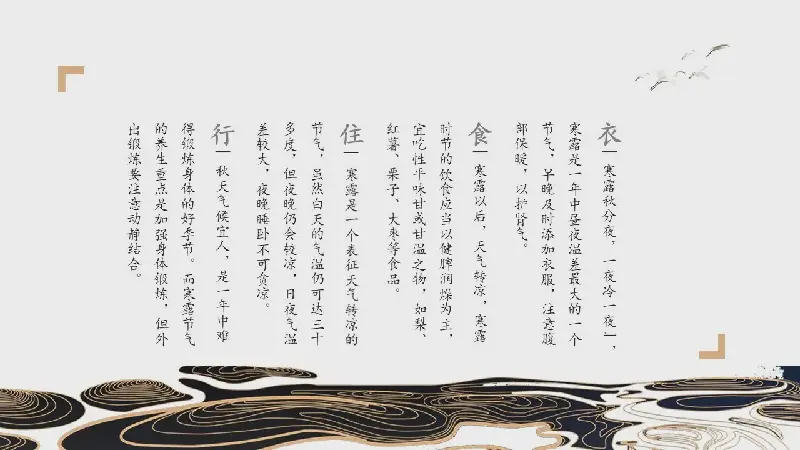 衣
寒露秋分夜，一夜冷一夜」，
寒露是一年中昼夜温差最大的一个
节气，早晚及时添加衣服，注意腹
部保暖，以护肾气。
食
寒露以后，天气转凉，寒露
时节的饮食应当以健脾润燥为主，
宜吃性平味甘或甘温之物，如梨、
红薯、栗子、大枣等食品。
住
寒露是一个表征天气转凉的
节气，虽然白天的气温仍可达三十
多度，但夜晚仍会较凉，日夜气温
差较大，夜晚睡卧不可贪凉。
行
秋天气候宜人，是一年中难
得锻炼身体的好季节。而寒露节气
的养生重点是加强身体锻炼，但外
出锻炼要注意动静结合。